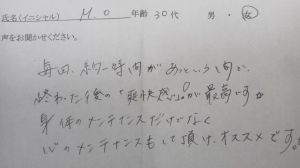 氏名(イニシャル) M.O 年齢 30代 男・女
声をお聞かせください。
毎回、お約一時間があっという間で、
終わった後の「爽快感」が最高です。
身体のメンテナンスだけでなく
心のメンテナンスもして頂け、オススメです。